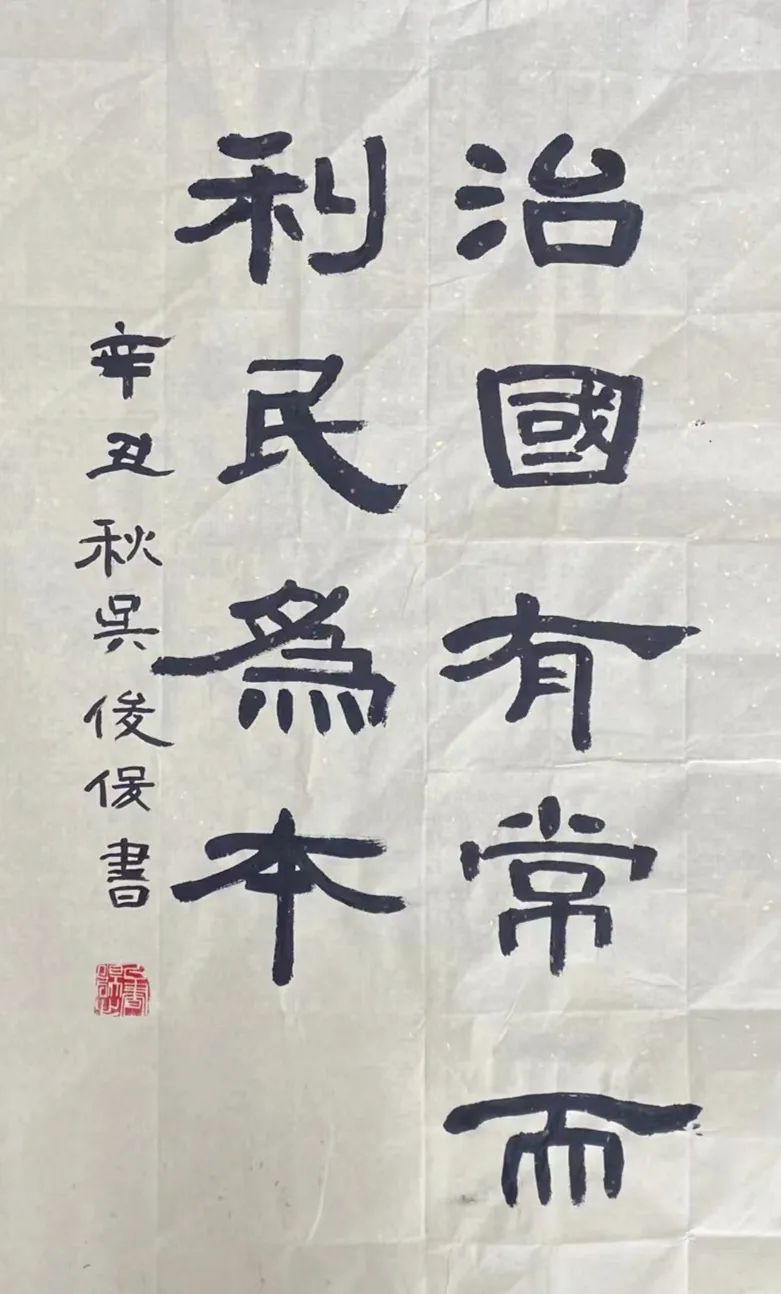 治國有常而
利民為本
辛丑秋吳俊俣書